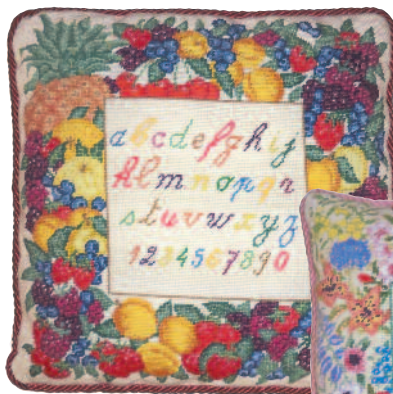 abcdefghij
klmnopqr
stuvwxyz
1234567890